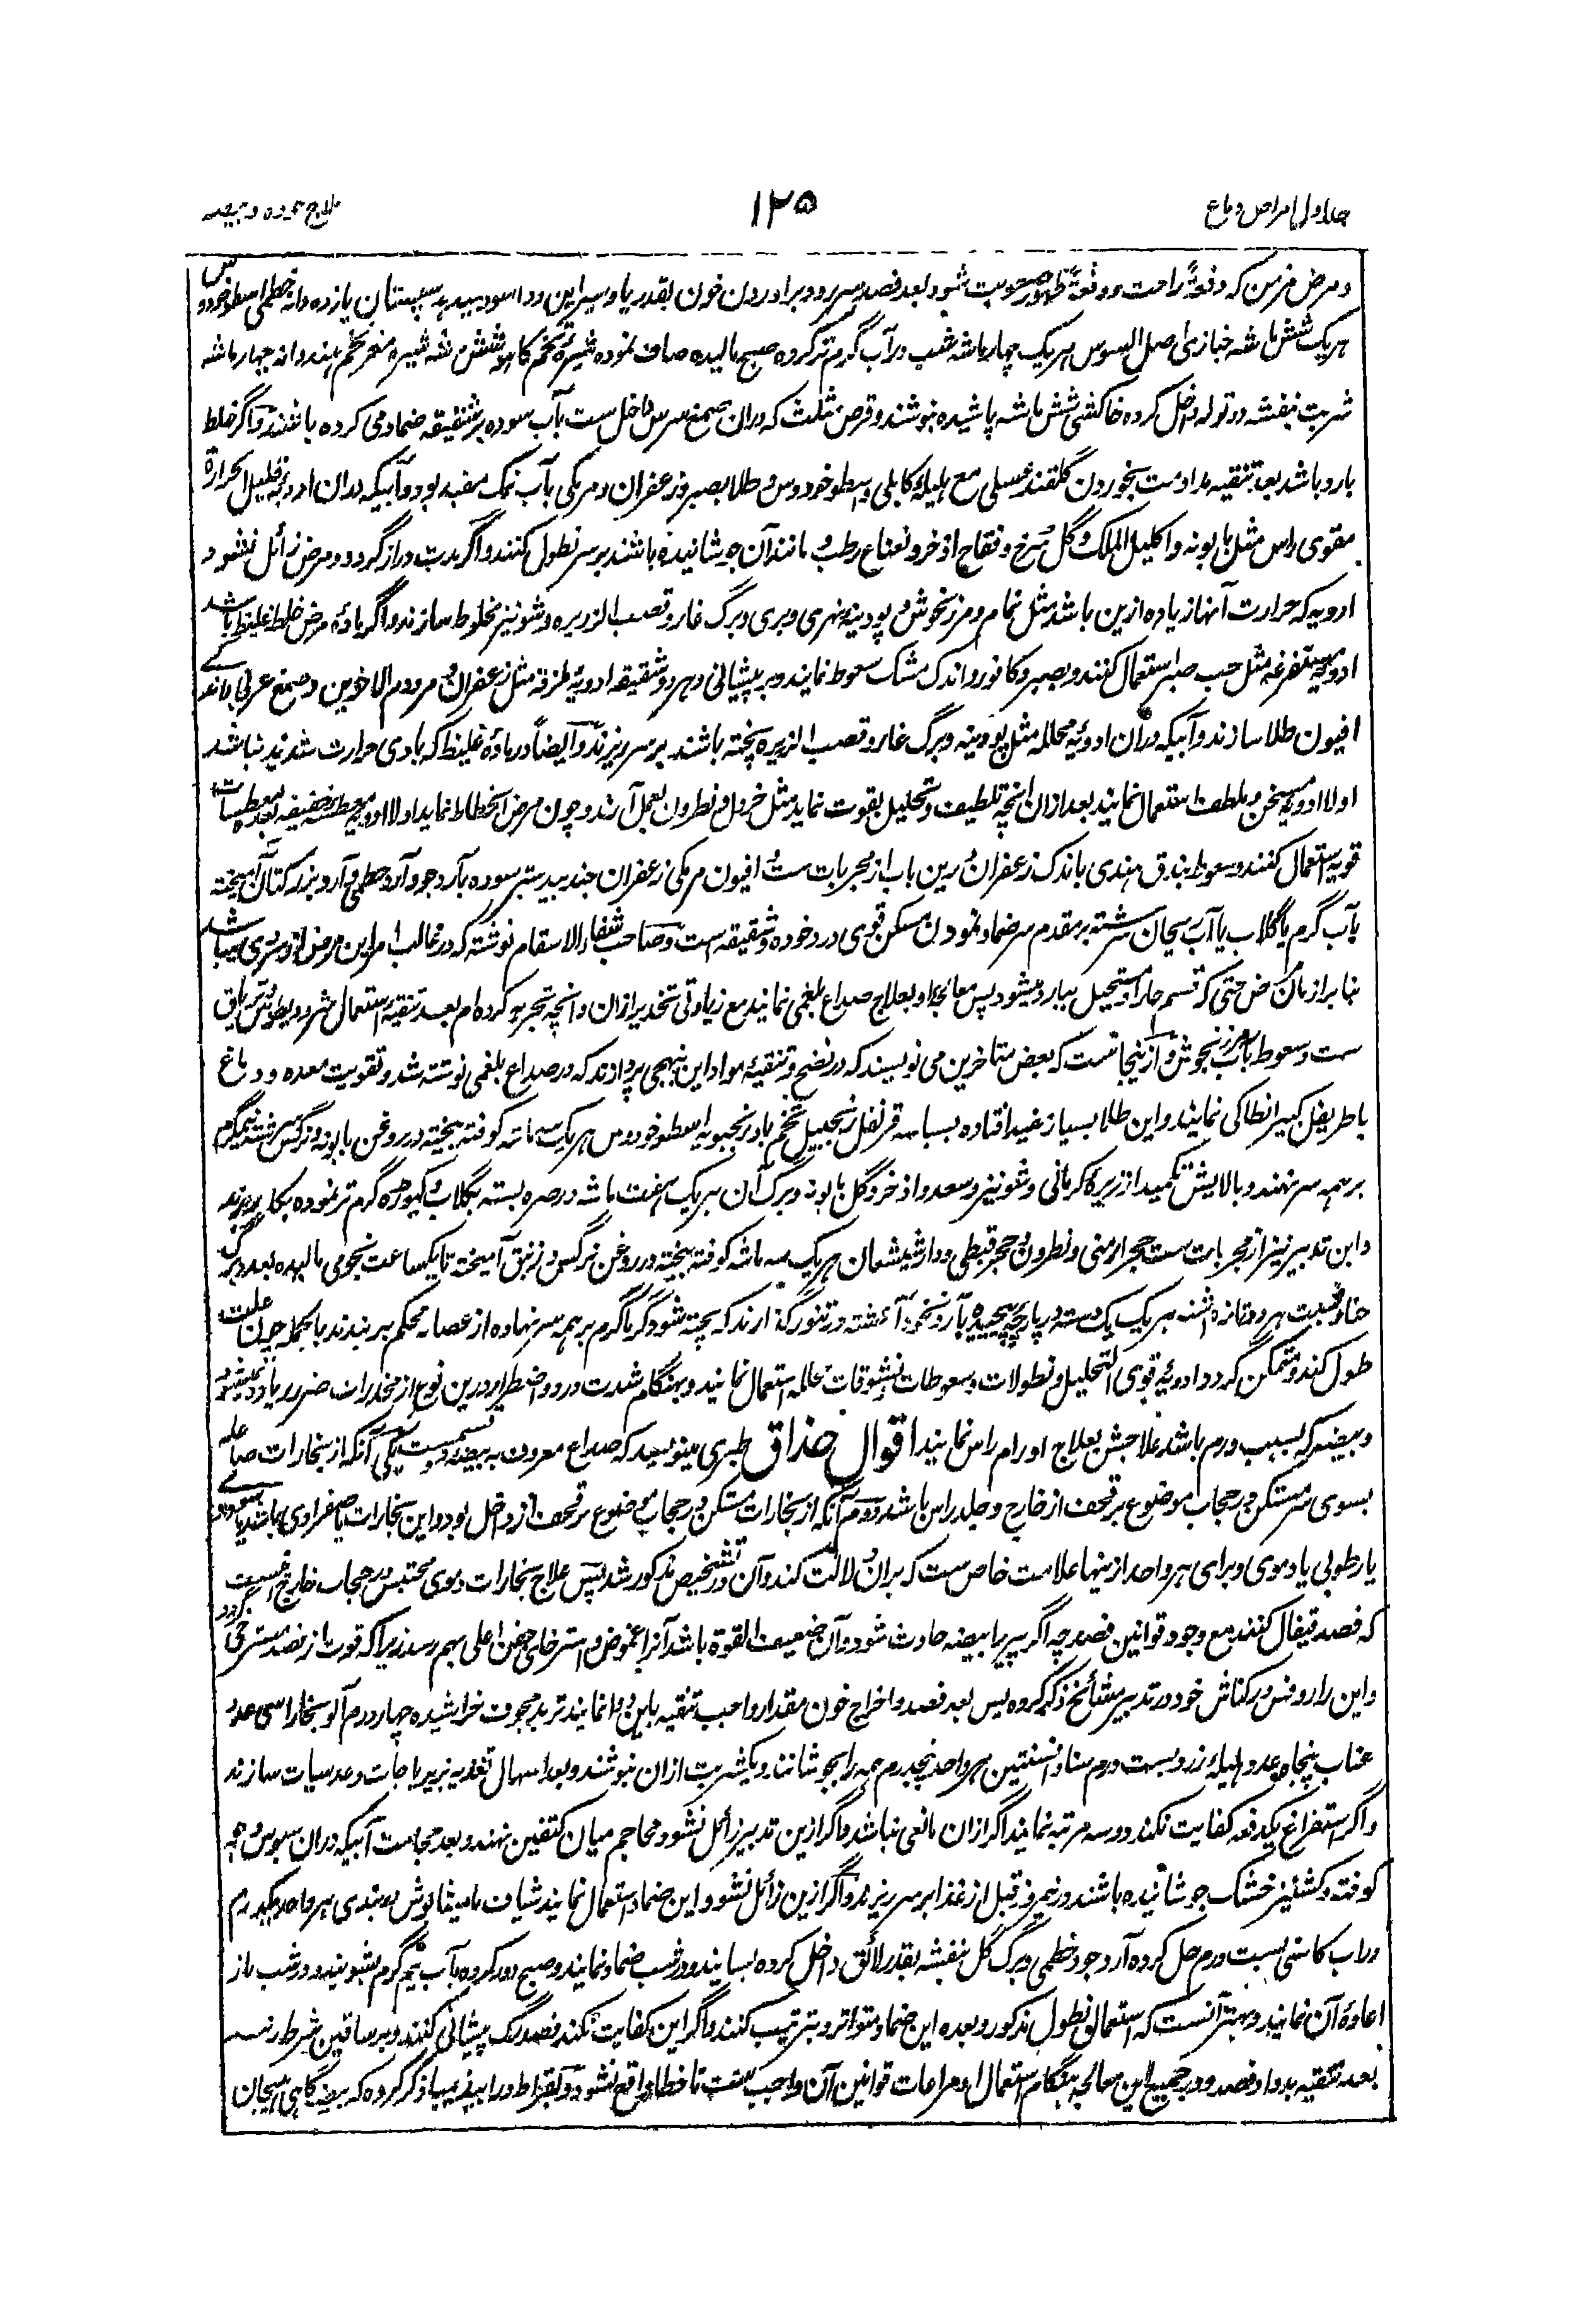 جلد اول امراض دماغ
۱۲۵
علاج خوده و بیضه
و مرض مزمن که دفعةً راحت و دفعةً ظهور صعوبت شود بعد فصد سررو و برآوردن خون بقدر یا وسیراین دوا سود بیند سپستان یازده دانه خطمی اسطوخودوس
هریک شش ماشه خبازی اصل السوس هریک چهار ماشه شب در آب گرم تر کرده صبح مالیده صاف نموده شیره تخم کاهو شش ماشه شیره مغز تخم هندوانه چهار ماشه
شربت بنفشه دو توله داخل کرده خاکشی شش ماشه پاشیده بنوشند و قرص مثلث که دران صمغ سرس داخل ست بآب سوده بر شقیقه ضماد می کرده باشند و اگر خلط
بارد باشد بعد تنقیه مداومت بخوردن گلقند عسلی مع هلیله کابلی و اسطوخودوس و طلا بصبر و زعفران و مرمکی بآب نمک مفید بود و آبیکه دران ادویه قلیل الحرارة
مقوی راس مثل بابونه و اکلیل الملک و گل سرخ و فقاح اذخر و نعناع رطب و مانند آن جوشانیده باشند بر سر نطول کنند و اگر مدت دراز گردد و مرض زائل نشود
ادویه که حرارت آنها زیاده ازین باشد مثل نمام و مرزنجوش و پودینه نهری و بری و برگ غار و قصب الزریره و شونیز مخلوط سازند و اگر ماده مرض خلط غلیظ باشد
ادویه مستفرغه مثل حب صبر استعمال کنند و بصبر و کافور و اندک مشک سعوط نمایند و بر پیشانی و هر دو شقیقه ادویه لزقه مثل زعفران و مر و دم الاخوین و صمغ عربی و اندکے
افیون طلا سازند و آبیکه دران ادویه محلله مثل پودینه و برگ غار و قصب الزریره پخته باشند بر سر ریزند و ایضاً در ماده غلیظ که با وی حرارت شدید نباشد
اولا ادویه مسخن و ملطف استعمال نمایند بعد ازان آنچه تلطیف و تحلیل بقوت نماید مثل خردل و نطرون بعمل آرند و چون مرض انحطاط نماید اولا ادویه معطسه خفیفه بعده معطسات
قویه استعمال کنند و سعوط بندق هندی باندک زعفران درین باب از مجربات ست افیون مرمکی زعفران جندبیدستر سوده بآرد جو و آرد خطمی و آرد بزر کتان آمیخته
بآب گرم یا گلاب یا آب ریحان سرشته بر مقدم سر ضماد نمودن مسکن قوی درد خوده و شقیقه است و صاحب شفاء الاسقام نوشته که در غالب امر این مرض از سردی میباشد
بنا بر ازمان مرض حتی که قسم حار او مستحیل ببارد میشود پس معالجه او بعلاج صداع بلغمی نمایند مع زیادتی تخدیر ازان و آنچه تجربه کرده ام بعد تنقیه استعمال مثرودیطوس و تریاق
ست و سعوط بآب مرزنجوش و ازینجاست که بعض متاخرین می نویسند که در نضج و تنقیه مواد این نهجی پردازند که در صداع بلغمی نوشته شد و تقویت معده و دماغ
باطریفل کبیر انطاکی نمایند و این طلا بسیار مفید افتاده بسباسه قرنفل زنجبیل تخم بادرنجبویه اسطوخودوس هریک سه ماشه کوفته بیخته در روغن بابونه و نرگس سرشته نیمگرم
بر همه سر نهند و بالایش تکمید از زیره کرمانی و شونیز و سعد و اذخر و گل بابونه و برگ آن هریک هفت ماشه در صره بسته بگلاب و کیوڑه گرم تر نموده بکار برند
و این تدبیر نیز از مجربات ست حجر ارمنی و نطرون و حجر قبطی و دارشیشعان هریک سه ماشه کوفته بیخته در روغن نرگس و زنبق آمیخته تا یکساعت نجومی مالیده بعد برگ
غار و شبت هر دو تازه باشند هریک یک دسته در پارچه پیچیده بآرد تخم آغشته در تنور گذارند که پخته شود گرماگرم بر همه سر نهاده از عصابه محکم بربندند بالجمله چون علت
طول کند و متمکن گردد ادویه قوی التحلیل و نطولات و سعوطات و نشوقات محلله استعمال نمایند و بهنگام شدت درد و اضطرار درین نوع از مخدرات ضرر زیاد نمیشود
و بیضه که بسبب ورم باشد علاجش بعلاج اورام راس نمایند اقوال حذاق طبری مینویسد که صداع معروف به بیضه دو قسم ست یکی آنکه از بخارات صاعده
بسوی سر متمکن در حجاب موضوع بر قحف از خارج و جلد راس باشد دوم آنکه از بخارات متمکن در حجاب موضوع بر قحف از داخل بود و این بخارات یا صفراوی باشند یا سوداوی
یا رطوبی یا دموی و برای هر واحد ازینها علامت خاص ست که بران دلالت کند و آن در تشخیص مذکور شد پس علاج بخارات دموی محتبس در حجاب خارج آنست
که فصد قیفال کنند مع وجود قوانین فصد چه اگر پیر یا بیضه حادث شود و آن ضعیف القوة باشد آنرا غموض و استرخای جفن اعلی بهم رسد زیرا که قوت از فصد مسترخی گردد
و این را روفس در کناش خود در تدبیر مشائخ ذکر کرده پس بعد فصد و اخراج خون مقدار واجب تنقیه باین دوا نمایند تربد مجوف خراشیده چهار درم آلو بخارا سی عدد
عناب پنجاه عدد هلیله زرد بست درم سنا و افسنتین هر واحد پنجدرم همه را بجوشانند و یکشربت ازان بنوشند و بعد اسهال تغذیه بزیرباجات و عدسیات سازند
و اگر استفراغ یکدفعه کفایت نکند دو سه مرتبه نمایند اگر ازان مانعی نباشد و اگر ازین تدبیر زائل نشود محاجم میان کتفین نهند و بعد حجامت آبیکه دران سبوس و جو
کوفته و کشنیز خشک جوشانیده باشند در نیمروز قبل از غذا بر سر ریزند و اگر ازین زائل نشود این ضماد استعمال نمایند شیاف مامیثا بوش دربندی هر واحد یکدرم
در آب کاسنی بست درم حل کرده آرد جو و خطمی و برگ گل بنفشه بقدر لائق داخل کرده بسایند و در شب ضماد نمایند و صبح دور کرده بآب نیم گرم بشویند و در شب باز
اعاده آن نمایند و بهتر آنست که استعمال نطول مذکور و بعده این ضماد متواتر و بترتیب کنند و اگر این کفایت نکند فصد رگ پیشانی کنند و بر ساقین شرط زنند
بعد تنقیه بدوا و فصد و در جمیع این معالجه بهنگام استعمال او مراعات قوانین آن واجب ست تا خطا واقع نشود و بقراط در ابیذیمیا ذکر کرده که بیضه گاهی بهیجان